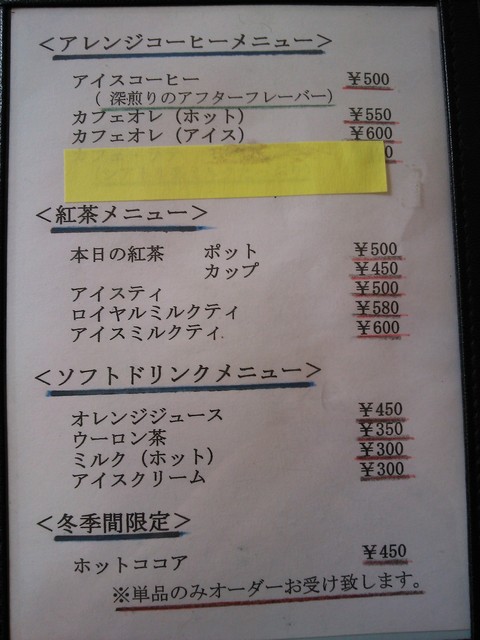 ＜アレンジコーヒーメニュー＞
アイスコーヒー ￥500
（ 深煎りのアフターフレーバー）
カフェオレ（ホット） ￥550
カフェオレ（アイス） ￥600
＜紅茶メニュー＞
本日の紅茶 ポット ￥500
カップ ￥450
アイスティ ￥500
ロイヤルミルクティ ￥580
アイスミルクティ ￥600
＜ソフトドリンクメニュー＞
オレンジジュース ￥450
ウーロン茶 ￥350
ミルク（ホット） ￥300
アイスクリーム ￥300
＜冬季間限定＞
ホットココア ￥450
※単品のみオーダーお受け致します。